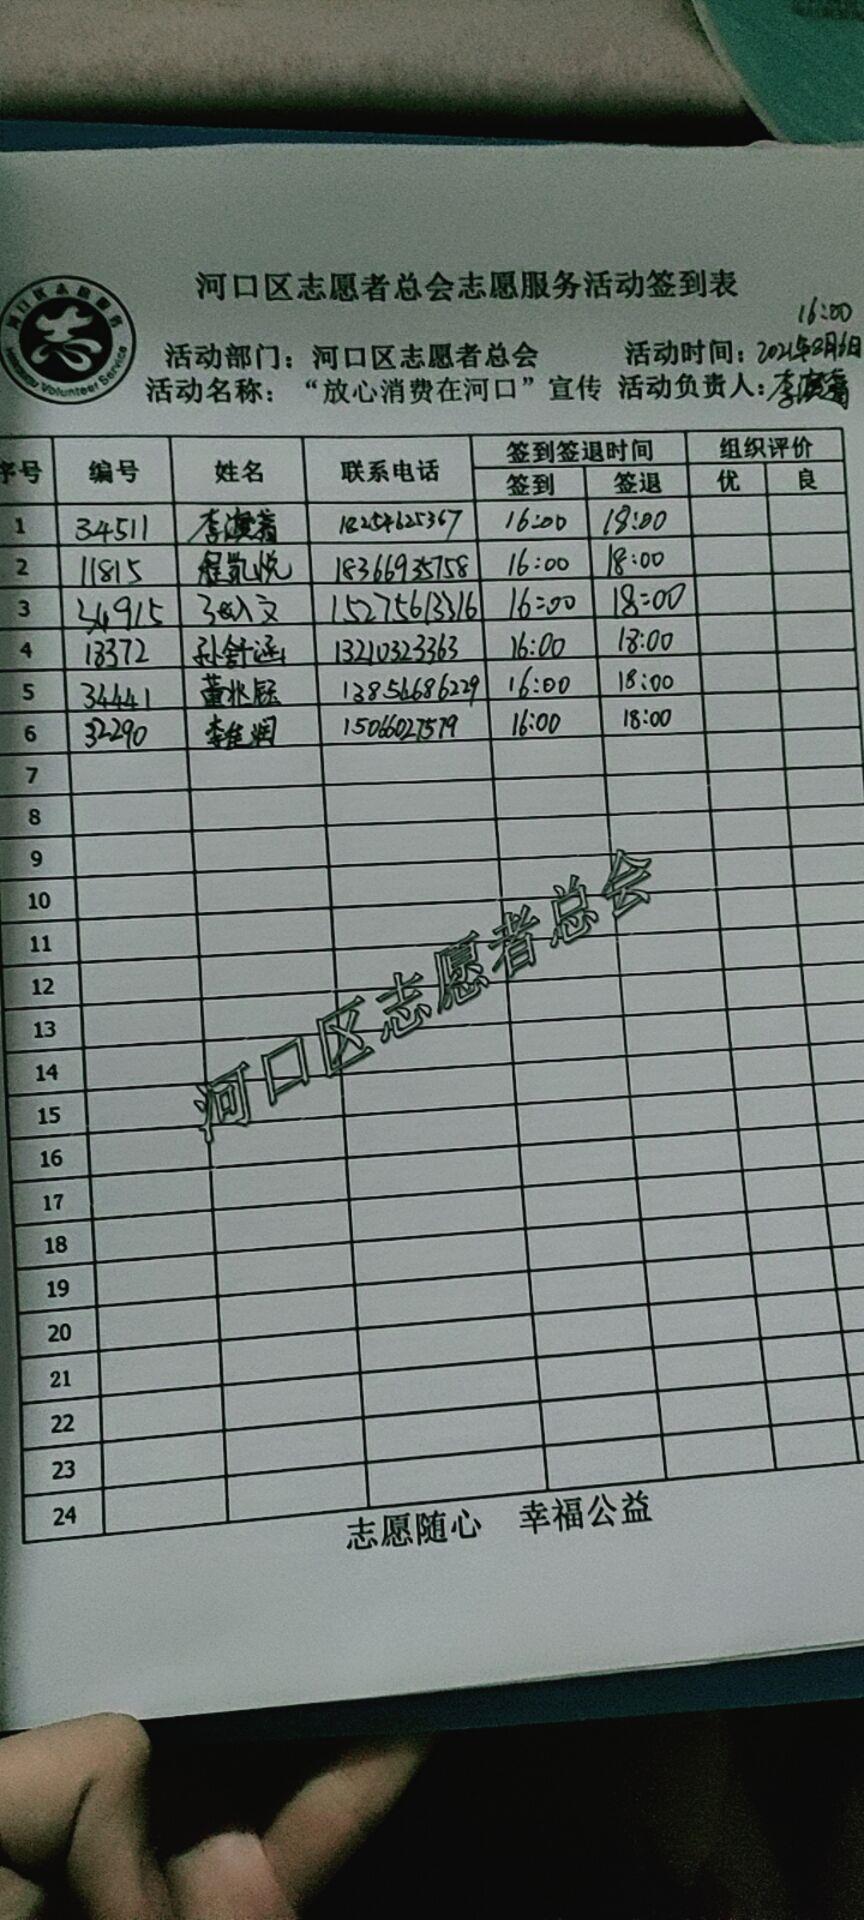 河口区志愿者总会志愿服务活动签到表
16:00
活动部门：河口区志愿者总会 活动时间：2021年8月6日
活动名称：“放心消费在河口”宣传 活动负责人：李
河口区志愿服务
Volunteer Service
序号 编号 姓名 联系电话 签到签退时间 组织评价
签到 签退 优 良
1 34511 李 18254625367 16:00 18:00
2 11815 程凯悦 18366935758 16:00 18:00
3 34915 文 15275613316 16:00 18:00
4 18372 孙舒涵 13210323363 16:00 18:00
5 34441 董兆钰 13854686229 16:00 18:00
6 32290 李佳润 15066027579 16:00 18:00
7
8
9
10
11
12
13
14
15
16
17
18
19
20
21
22
23
24
河口区志愿者总会
志愿随心 幸福公益